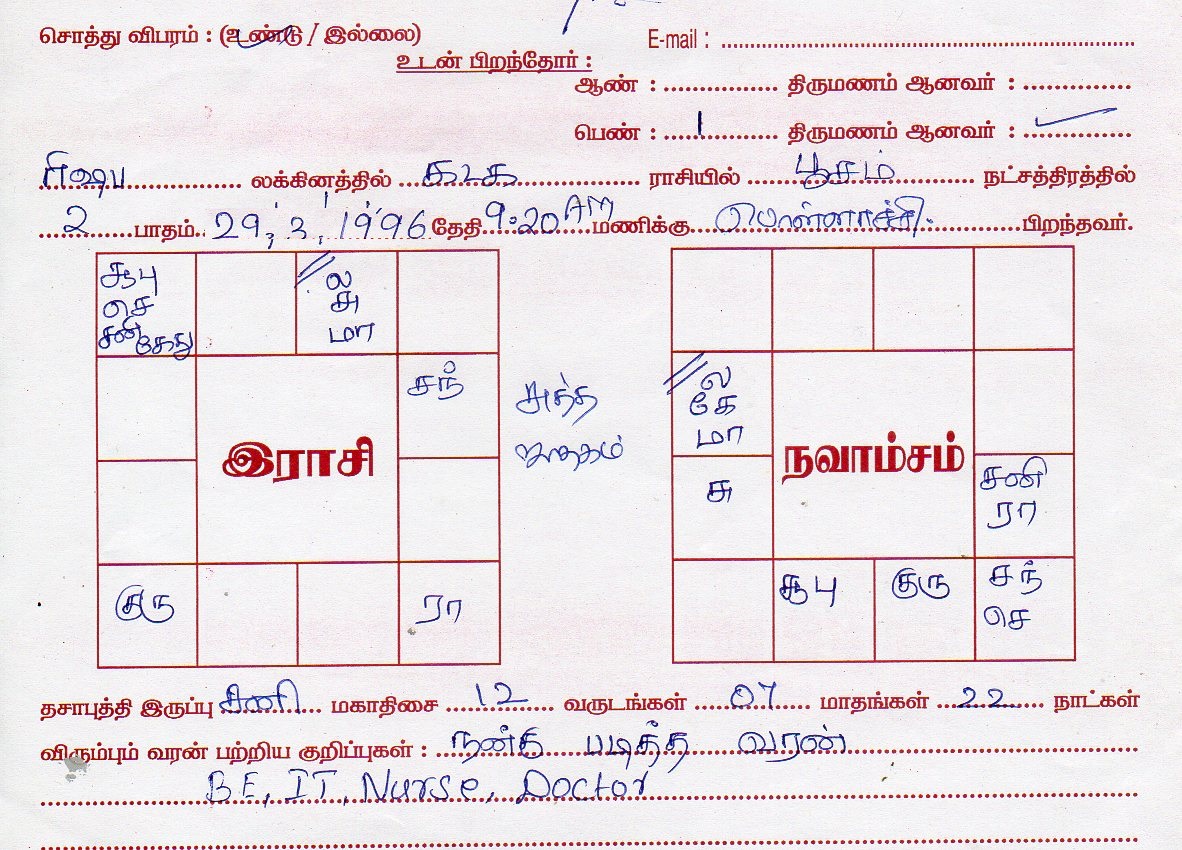 சொத்து விபரம் : (உண்டு / இல்லை)
E-mail : ........................
உடன் பிறந்தோர் :
ஆண் : ................ திருமணம் ஆனவர் : ...............
பெண் : .....1........... திருமணம் ஆனவர் : ......✓.........
ரிஷப லக்கினத்தில் கடக ராசியில் பூசம் நட்சத்திரத்தில்
2 பாதம் 29, 3, 1996 தேதி 9:20 AM மணிக்கு பொள்ளாச்சி பிறந்தவர்.
சூபு
செ
சனி கேது
ல
சு
மா
சந்
இராசி
குரு
ரா
சுத்த
ஜாதகம்
ல
கே
மா
நவாம்சம்
சு
சனி
ரா
சூபு
குரு
சந்
செ
தசாபுத்தி இருப்பு சனி மகாதிசை 12 வருடங்கள் 07 மாதங்கள் 22 நாட்கள்
விரும்பும் வரன் பற்றிய குறிப்புகள் : நன்கு படித்த வரன்
BE, IT, Nurse, Doctor